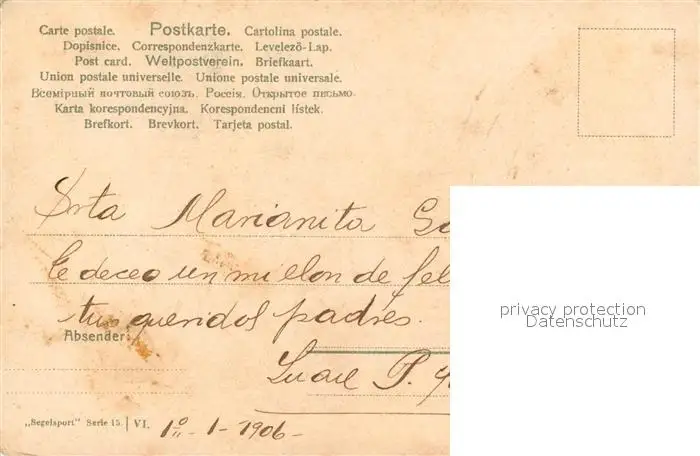 Carte postale. Postkarte. Cartolina postale.
Dopisnice. Correspondenzkarte. Levelező-Lap.
Post card. Weltpostverein. Briefkaart.
Union postale universelle. Unione postale universale.
Всемірный почтовый союзъ. Россія. Открытое письмо.
Karta korespondencyjna. Korespondencni lístek.
Brefkort. Brevkort. Tarjeta postal.
Srta Marianita
le deceo un millon de fel
tus queridos padres.
Absender:
P.
„Segelsport" Serie 15. VI. 1º - 1 - 1906 -
privacy protection
Datenschutz